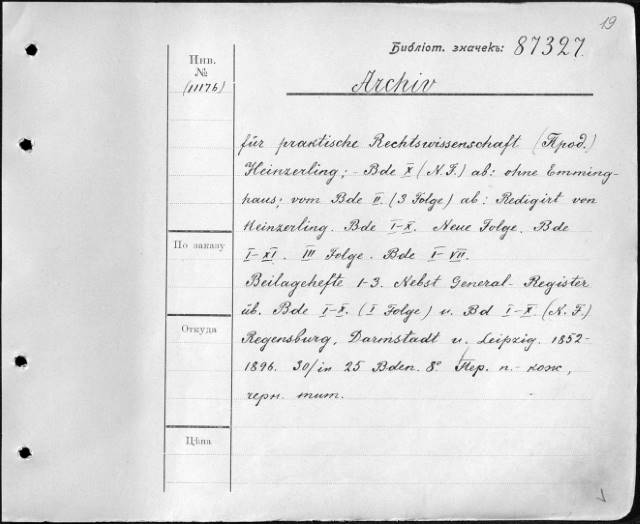 19
Библіот. значекъ: 87327.
Инв.
№
(11176)
Archiv
für praktische Rechtswissenschaft (Прод.)
Heinzerling; - Bde X (N. F.) ab: ohne Emming-
haus; vom Bde II. (3 Folge) ab: Redigirt von
Heinzerling. Bde I-X. Neue Folge. Bde
I-XI. III Folge. Bde I-VII.
По заказу
Beilagehefte 1-3. Nebst General-Register
üb. Bde I-X. (I Folge) u. Bd I-X. (N. F.)
Откуда
Regensburg, Darmstadt u. Leipzig. 1852-
1896. 30/in 25 Bden. 8° Пер. п.- кож,
черн. тит.
Цѣна